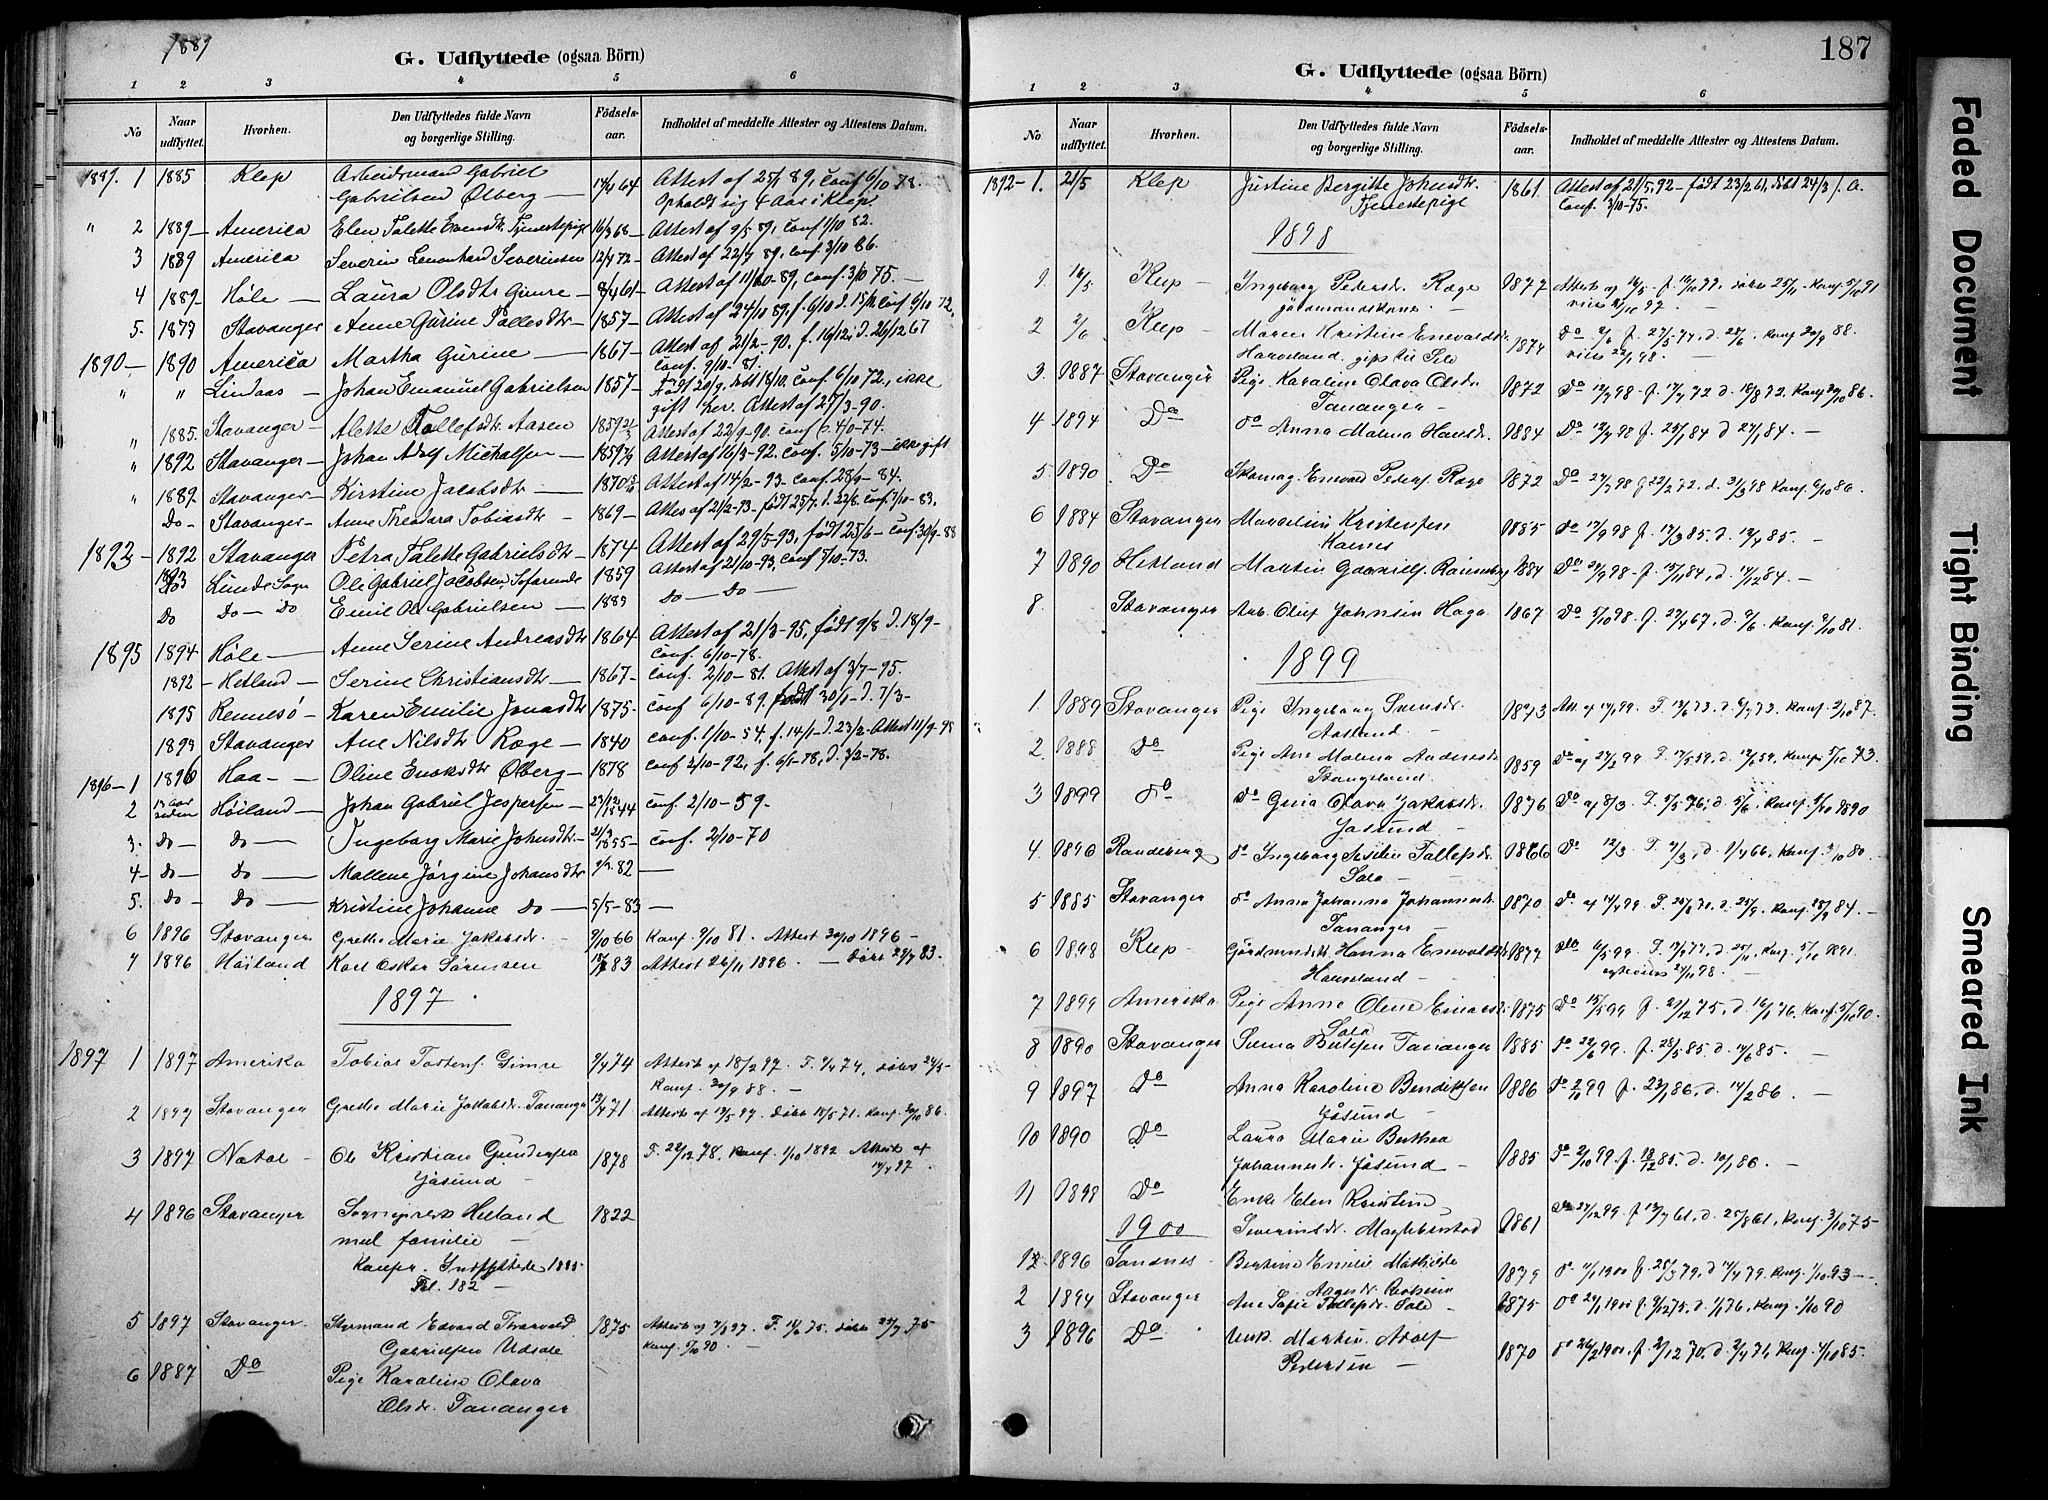 1889
G. Udflyttede (ogsaa Börn)
1 2 3 4 5 6
No Naar udflyttet. Hvorhen. Den Udflyttedes fulde Navn og borgerlige Stilling. Födsels-aar. Indholdet af meddelte Attester og Attestens Datum.
1889. 1 1885 Klep Arbeidsmand Gabriel
Gabrielsen Ølberg — 14/4 64 Attest af 25/1 89, Conf 6/10 78.
Opholdt sig 4 Aar i Klep.
" 2 1889 — America Elen Talette Tjenestepige 16/3 68 — Attest af 9/5 89, Conf 1/10 82.
3 1889 America Severin Leonhard Severinsen 12/4 72 — Attest af 22/7 89, Conf. 3/10 86.
4 1889 — Høle — Laura Olsdtr Gimre — 8/4 61 — Attest af 11/10-89, Conf. 3/10 75. —
5. 1879 Stavanger — Anne Gurine Tollesdtr — 1857 — Attest af 24/10 89, f. 6/10 d. 15/12 Conf 6/10 72.
1890 — 1890 America Martha Gurine — 1867 — Attest af 21/2-90. f. 16/12, d. 26/12 67
Conf. 9/10-81.
" " Lindaas — Johan Emanuel Gabrielsen 1857 — Født 20/9. døbt 18/10. Conf. 6/10 72, ikke
gift her. Attest af 27/3-90.
" 1885. Stavanger — Alette Tollefsdtr Aasen 1859 Attest af 22/9-90. Conf 6.40-74.
" 1892 Stavanger — Johan Adolf Michelsen — 1859 Attest af 16/3-92. Conf. 5/10-73 — ikke gift
" 1889 Stavanger — Kirstine Jacobsdtr — 1870 Attest af 14/2-93. Conf. 28/9-84.
Do — Stavanger — Anne Theodora Tobiasdtr — 1869 — Attes af 21/2-93. født 25/7. d. 22/8. Conf. 7/10-83.
1892 — 1892 Stavanger Petra Talette Gabrielsdtr — 1874 Attest af 29/5-93, født 25/6 — Conf 30/9-88
1893 Lunde Sogn Ole Gabriel Jacobsen, Søfarende 1859 Attest af 21/10-93, Conf 5/10-73.
Do Do — Do Emil Ole Gabrielsen — 1889 Do — Do —
1895 1894 Høle — Anne Serine Andreasdtr 1864 Attest af 21/3-95, født 9/8 d. 18/9 —
Conf. 6/10-78.
1892 — Hetland — Serine Christiansdtr — 1867 — Conf. 2/10-81. Attest af 3/7-95.
1895 Rennesø — Karen Emilie Jonasdtr 1875 — Conf 6/10-89. født 30/1 — d. 7/3 —
1893 Stavanger Ane Nilsdtr Røge — 1840 Conf. 1/10-54, f. 14/1 — d. 23/2 — Attest 11/9-95
1896 — 1 1896 Haa — — Oline Enoksdtr Ølberg — 1878 Conf 2/10-92, f. 6/1-78, d. 3/2-78.
2 13 Aar siden Høiland — Johan Gabriel Jespersen — 23/12 44 Conf 2/10-59.
3. Do — Do — Ingeborg Marie Johnsdtr — 1855 — Conf. 2/10-70
4 — Do — Do — Mallene Jørgine Johansdtr 82 —
5. Do — Do — Kristine Johanne Do — 5/5-83 —
6 1896 Stavanger Grethe Marie Jakobsdr. — 9/10 66 Konf. 9/10 81. Attest 30/10 1896 —
7 1896 Høiland Karl Oskar Sørensen 83 Attest 26/11 1896. — Døbt 29/7 83.
1897
1897 1 1897 Amerika Tobias Tostens. Gimre 9/4 74 Attest af 18/2 97. F. 9/4 74, døbt 24/5 —
Konf. 30/9 88. —
2 1897 Stavanger Grethe Marie Jakobsdr. Tananger 13/4 71 Attest af 13/5 97. Døbt 18/5 71. Konf. 30/10 86.
3 1897 Natal — Ole Kristian Gundersen
Jåsund — 1878 F. 22/12 78. Konf. 1/10 1892 Attest af
14/7 97.
4 1896 Stavanger Sogneprest Hetland 1822
med familie —
Konfer. Indflyttede 1885
Fol. 182 —
5 1897 Stavanger Styrmand Edvard Thorvald
Gabrielsen Udsole 1875 Attest af 7/8 97. F. 14/6 75. døbt 25/7 75
Konf. 5/10 90. —
6 1887 Do Pige Karoline Olava
Olsdr. Tananger
187
G. Udflyttede (ogsaa Börn)
1 2 3 4 5 6
No Naar udflyttet. Hvorhen. Den Udflyttedes fulde Navn og borgerlige Stilling. Födsels-aar. Indholdet af meddelte Attester og Attestens Datum.
1892 — 1. 21/5 Klep Justine Bergitte Johnsdtr. 1861 Attest af 21/5. 92 — født 23/2 61, døbt 24/3 s. A.
Tjenestepige Conf. 3/10-75.
1898
1. 16/5 Klep — Ingeborg Pedersdr. Røge 1877 Attest af 16/5. f. 16/10 77. døbt 25/11. Konf. 5/10 91
gårdmandskone —
2 2/6 Klep — Maren Kristine Enevaldsdr.
Haveland. gift til Sele 1874 Do 2/6 f. 27/5 74, d. 28/6. Konf 30/9 88.
3. 1887 Stavanger Pige Karoline Olava Olsdr.
Tananger — 1872 Do 12/7 98. f. 17/7 72 d. 18/8 72. Konf 30/10 86.
4 1894 Do do Anna Malena Hansdr. 1884 Do 12/7 98 f. 25/1 84 d 27/1 84. —
5 1890 Do Skomag. Enevald Peders. Røge 1872 Do 27/7 98 f 22/2 72. d. 31/3 98 Konf 9/10 86.
6 1884 Stavanger Marselius Kristensen
Kolnes 1885 do 17/9 98 f. 17/3 85. d. 12/4 85. —
7 1890 Hetland Martin Gabriels. 1884 Do 20/9 98 — f. 15/11 84, d. 14/12 84. —
8. Stavanger Arb. Oluf Johnsen Haga 1867 Do 5/10 98. f. 27/4 67, d. 9/6. Konf. 9/10 81.
1899
1. 1889 Stavanger Pige Ingeborg Svensdr.
Aasland — 1873 Att. af 17/1 99. F. 13/6 73. d. 6/7 73. Konf. 2/10 87.
2. 1888 Do Pige Ane Malena Andersdr.
Stangeland 1859 Do af 27/2 99 F. 17/5 59, d. 12/6 59, Konf 5/10 73.
3 1899 do do Gina Olava Jakobsdr.
Jåsund — 1876 Do af 8/3. F. 5/5 76, d. 5/6. Konf. 5/10 1890
4. 1896 Randeberg do Ingeborg Tallefsdr.
Sola — 1866 Do 12/3. F. 4/3, d. 1/4 66, Konf. 3/10 80.
5 1885 Stavanger do Anna Johanna Johannesdr.
Tananger — 1870 Do af 14/4 99. F. 28/8 70. d. 25/9. Konf. 28/9 84. —
6 1898 Klep — Gårdmandsk. Hanna Enevaldsdr.
Haveland — 1877 Do 6/5 99. F. 13/9 77, d. 25/11. Konf. 5/10 1891.
7 1899 Amerika Pige Anne Olene Einarsdr. 1875 Do 15/5 99 f. 27/12 75, d. 16/1 76, Konf. 5/10 90.
Sola
8 1890 Stavanger Serina Tananger 1885 do 22/6 99. f. 25/5 85. d. 14/6 85. —
9 1897 Do Anna Karoline Bendiksen
Jåsund — 1886 do 2/10 99 f. 23/1 86, d. 14/2 86. —
10 1890 Do Laura Marie Berthea
Johannesdr. Jåsund — 1885 do 2/10 99. f. 13/12 85. d. 10/1 86. —
11 1898 Do Enke Elen Kristine
1900 Severinsdr. Magleberstad 1861 Do 27/12 99. f 12/7 61, d. 25/8 61, Konf. 3/10 75 —
1 1896 Sandnes — Bertine Emilie Mathilde 1879 do 11/1 1900 f. 25/3 79, d 14/4 79. Konf. 1/10 93 —
2 1894 Stavanger Ane Sofie Tollefsdr. Sole — 1875 do 24/1 1900 f. 9/12 75, d. 1/1 76, Konf. 5/10 90
3 1896 Do Unk. Martin Adolf
Pedersen — 1870 do 26/2 1900. f. 2/12 70, d. 2/4 71, Konf. 4/10 85.
Faded Document
Tight Binding
Smeared Ink